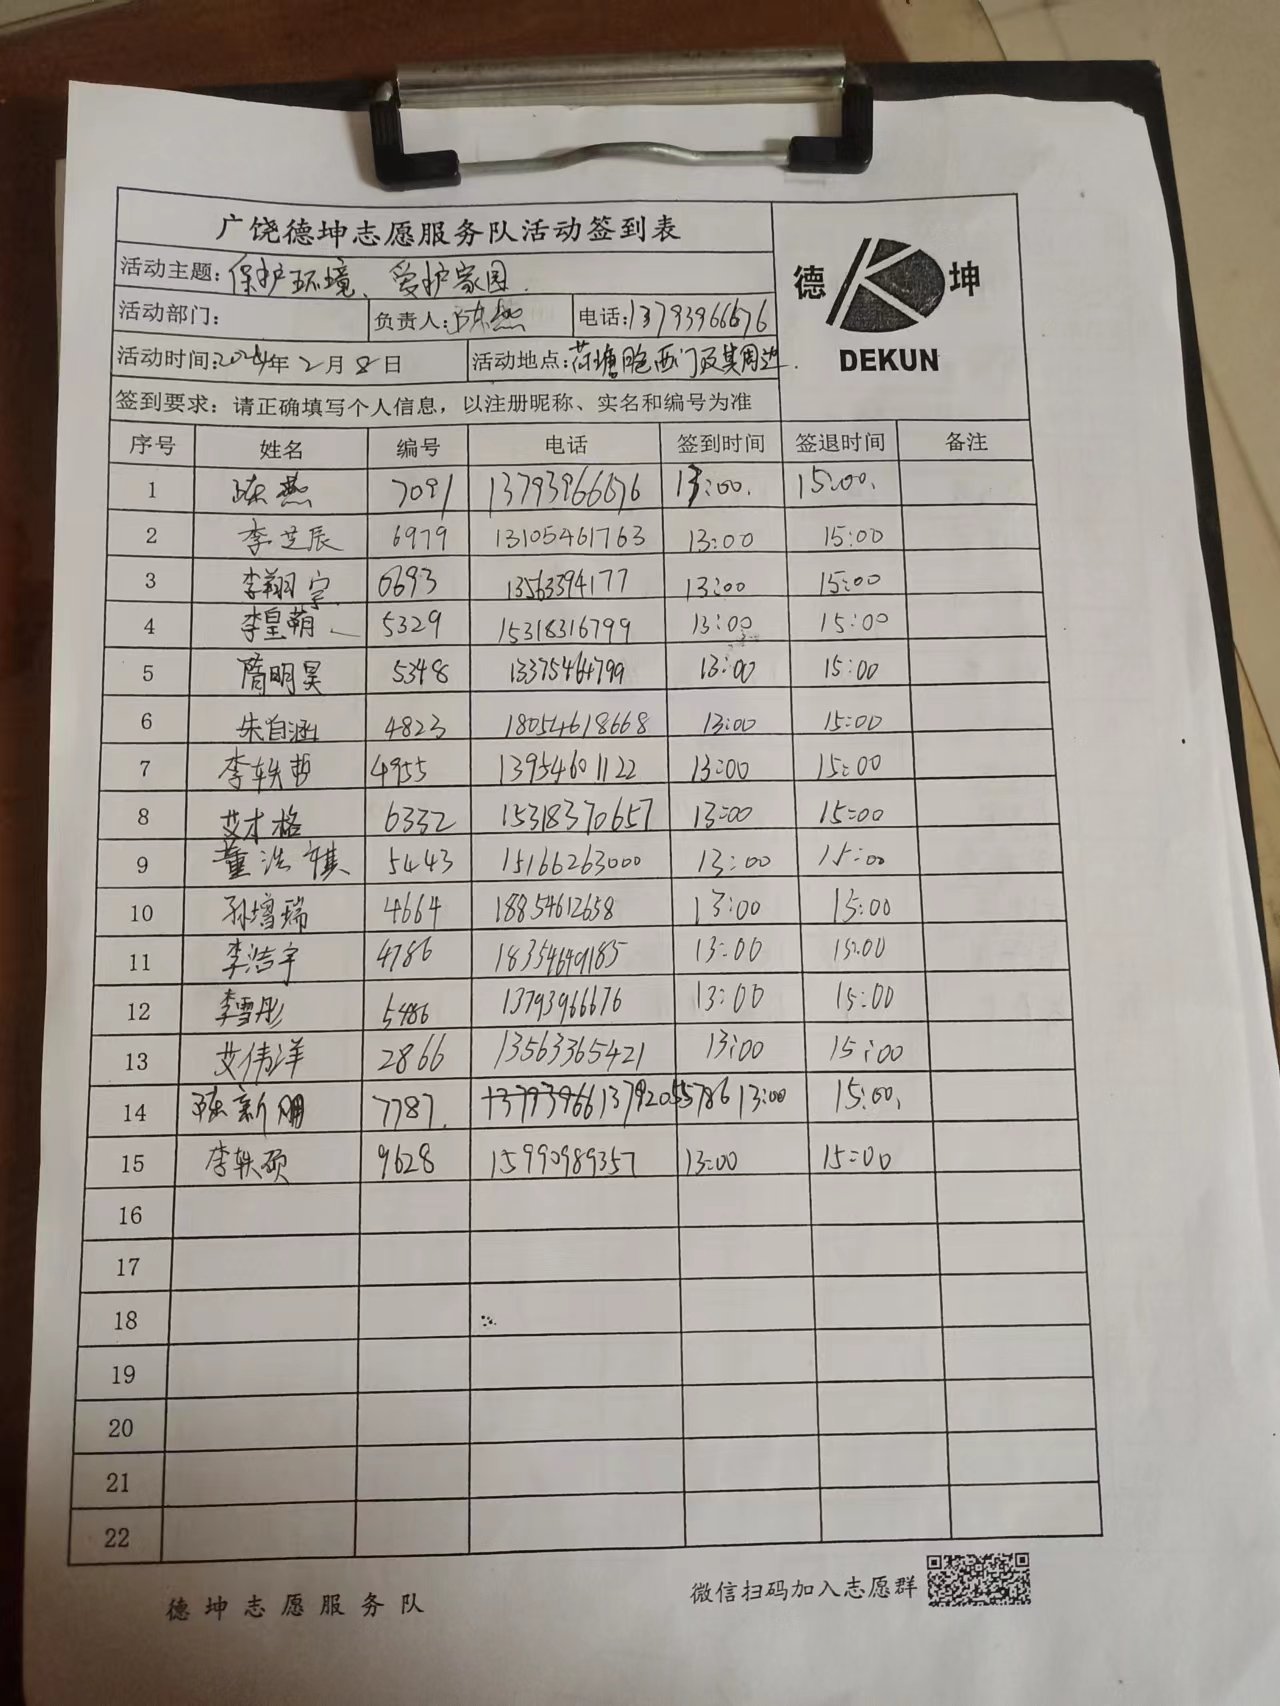 广饶德坤志愿服务队活动签到表
德 坤
DEKUN
活动主题：保护环境、爱护家园.
活动部门： 负责人：陈燕 电话：13793966676
活动时间：2024年2月8日 活动地点：荷塘月色西门及其周边.
签到要求：请正确填写个人信息，以注册昵称、实名和编号为准
序号 姓名 编号 电话 签到时间 签退时间 备注
1 陈燕 7091 13793966676 13:00. 15:00.
2 李芝辰 6979 13105461763 13:00 15:00
3 李翔宇 6693 13563394177 13:00 15:00
4 李皇萌 5329 15318316799 13:00 15:00
5 隋明昊 5348 13375464799 13:00 15:00
6 朱自涵 4823 18054618668 13:00 15:00
7 李轶哲 4955 13954601122 13:00 15:00
8 艾才格 6332 15318370657 13:00 15:00
9 董浩祺 5443 15166263000 13:00 15:00
10 孙增瑞 4664 18854612658 13:00 15:00
11 李洁宇 4786 18354649185 13:00 15:00
12 李雪彤 5486 13793966676 13:00 15:00
13 艾伟洋 2866 13563365421 13:00 15:00
14 陈新朋 7787. 13792055786 13:00 15:00.
15 李轶硕 9628 15990989357 13:00 15:00
16
17
18
19
20
21
22
德坤志愿服务队 微信扫码加入志愿群